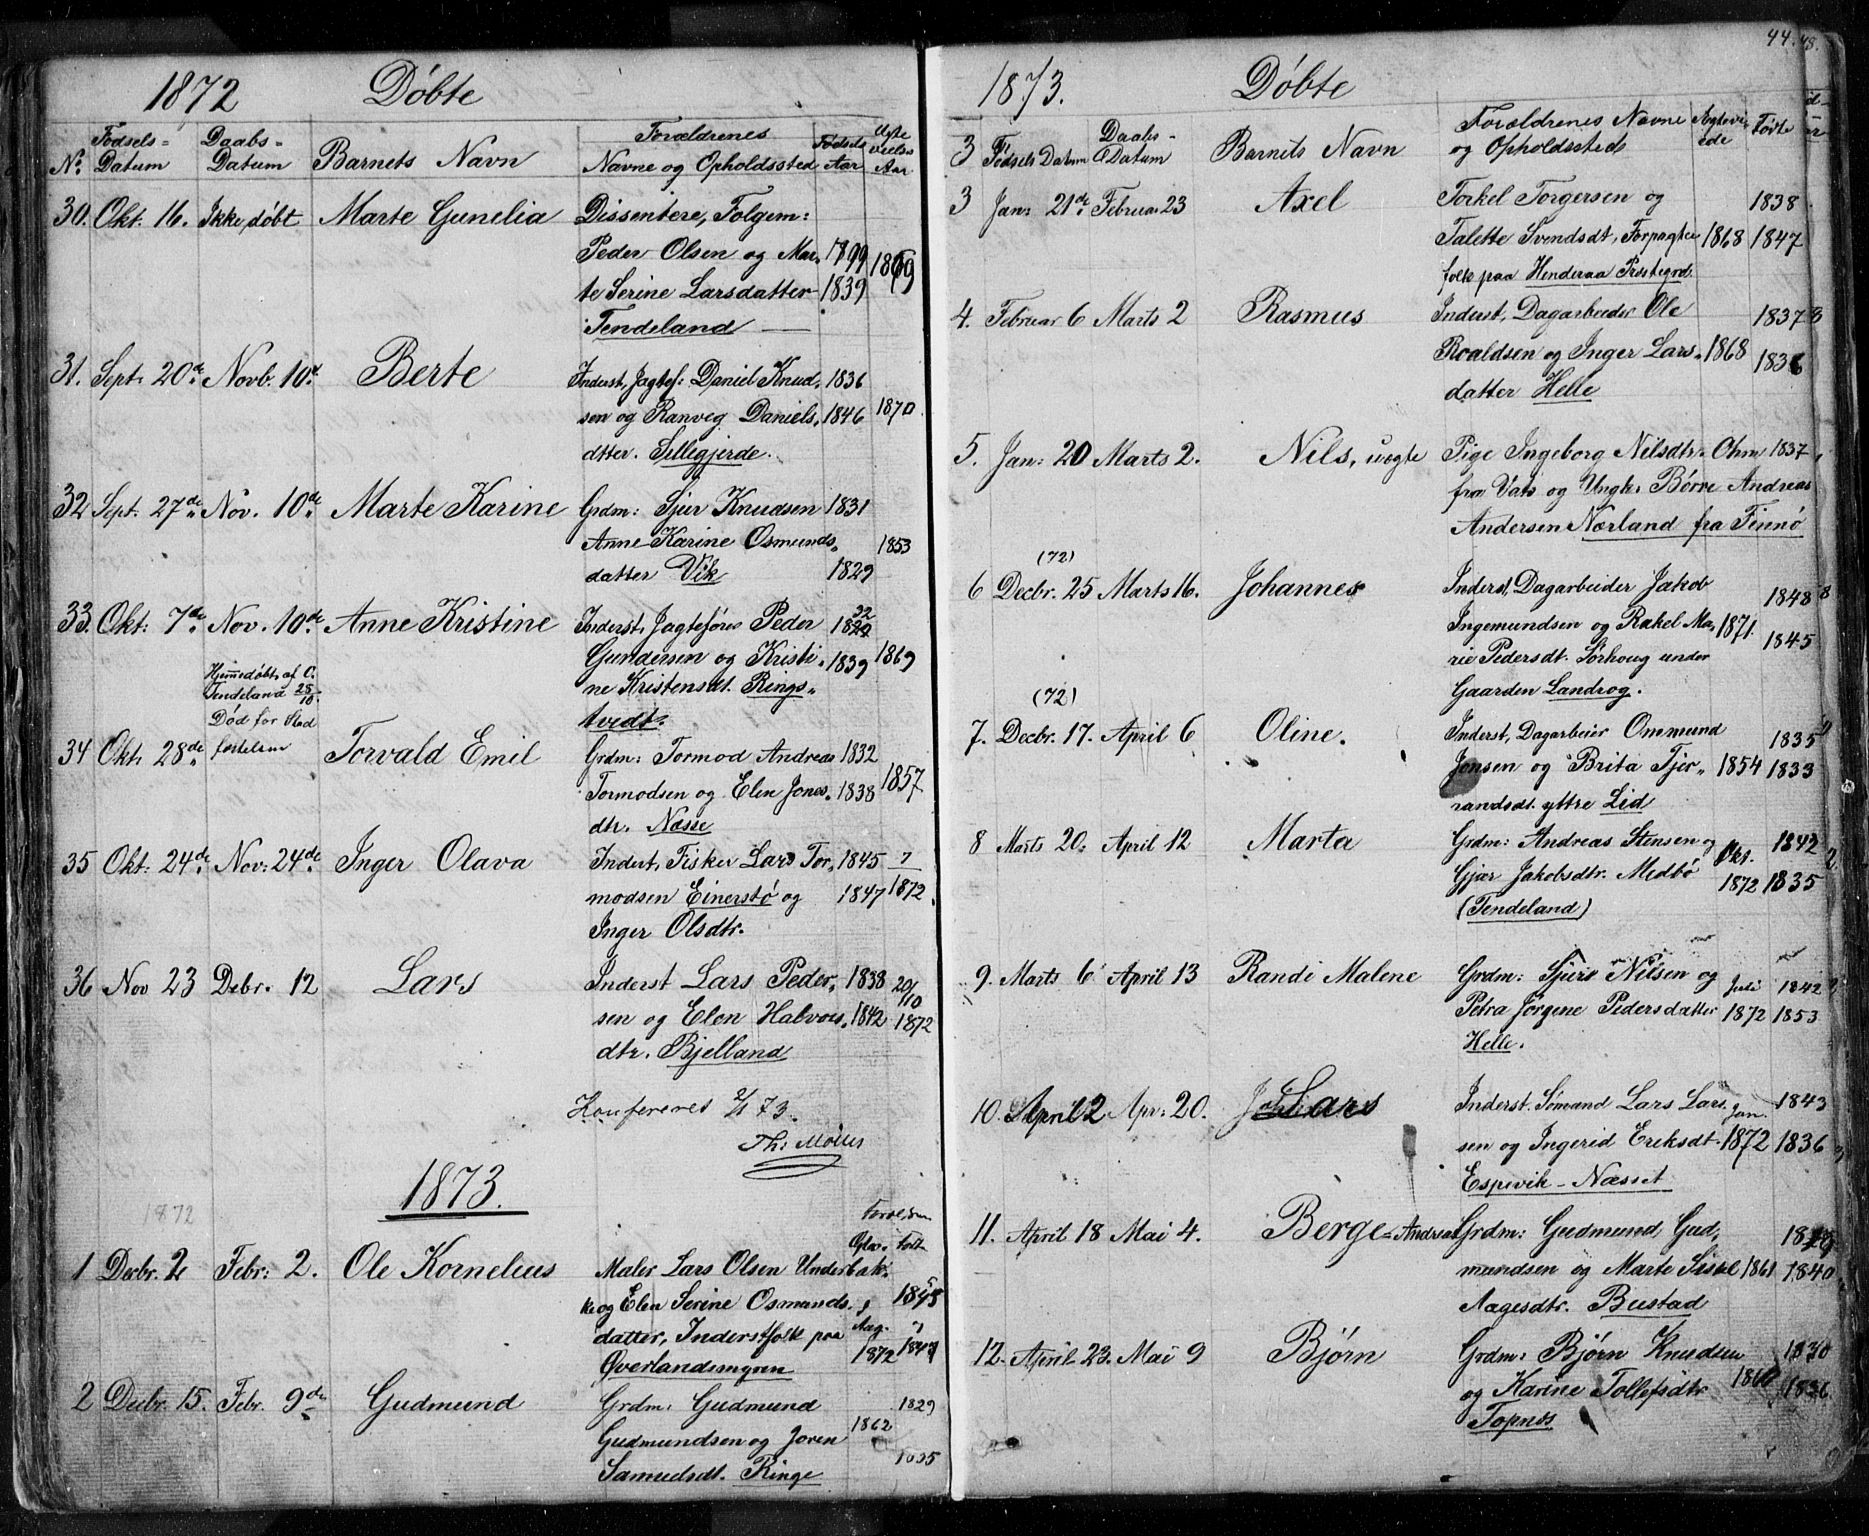 1872 Döbte
No. Fødsels= Datum Daabs= Datum Barnets Navn Forældrenes Navne og Opholdssted Fødsels Aar Aar
30. Okt. 16. Ikke døbt Marte Gunelia Dissentere, Folgem:
Peder Olsen og Mar- 1799
te Serine Larsdatter 1839
Tendeland
31. Sept. 20de Novb. 10d. Berte Inderst, Jagtef: Daniel Knud- 1836
sen og Ranveg Daniels- 1846 1870
dtter. Sellegjerde.
32 Sept. 27de Nov. 10de Marte Karine Grdm: Sjur Knudsen 1831
Anne Karine Osmunds- 1853
datter Vik 1829
33. Okt: 7de Nov. 10de Anne Kristine Inderst, Jagtefører Peder
Gundersen og Kristi- 1839 1869
ne Kristensdt. Rings-
tvedt.
Hjemmedøbt af C.
Tendeland 25/10.
Død før Stad
fæstelsen
34 Okt. 28de Torvald Emil Grdm: Tormod Andreas 1832
Tormodsen og Elen Jones- 1838 1857
dtr. Næsse
35 Okt: 24de Nov: 24de Inger Olava Inderst, Fisker Lars Tor- 1845 7
modsen Einerstø og 1847 1872
Inger Olsdtr.
36 Nov 23 Debr. 12 Lars Inderst Lars Peder- 1838 20/10
sen og Elen Halvors- 1842 1872
dtr. Bjelland
Konfereret 2/1 73.
Th: Møller
1873.
1872
1 Decbr. 2 Febr: 2. Ole Kornelius Maler Lars Olsen Underbak-
ke og Elen Serine Osmunds-
datter, Inderstfolk paa Aug. 1872
Øverlandsmyren
2 Decbr. 15. Febr. 9de Gudmund Grdm: Gudmund 1829
Gudmundsen og Joren 1862
Samuelsdt. Ringe
44. 48.
1873. Døbte
Fødsels Datum Daabs- Datum Barnets Navn Forældrenes Navne og Opholdssted Fødte
3 Jan: 21de Februar 23 Axel Torkel Torgersen og 1838
Talette Svendsdt, Forpagter 1868 1847
folk paa Henderaa Præstegrd.
4. Februar 6 Marts 2 Rasmus Inderst, Dagarbeider Ole 1837
Roaldsen og Inger Lars- 1868 1836
datter Helle
5. Jan: 20 Marts 2. Nils, uægte Pige Ingeborg Nilsdtr. 1837
fra Vats og Ungk. Børre Andreas
Andersen Nærland fra Finnø
(72)
6 Decbr. 25 Marts 16. Johannes Inderst, Dagarbeider Jakob 1848
Ingemundsen og Rakel Ma- 1871. 1845
rie Pedersdt. Sørhoug under
Gaarden Landrog.
(72)
7. Decbr. 17. April 6 Oline. Inderst, Dagarbeier Ommund 1835
Jonsen og Brita Tjer- 1854 1833
randsdt. yttre Lid
8 Marts 20. April 12 Marta Grdm: Andreas Stensen og Okt. 1842
Gjør Jakobsdtr. Medbø 1872 1835
(Tendeland)
9. Marts 6 April 13 Randi Malene Grdm: Sjurs Nilsen og Juli 1842
Petra Jørgene Pedersdatter 1872 1853
Helle.
10. April 2 Apr: 20. Lars Inderst. Sømand Lars Lars- Jan. 1843
sen og Ingerid Eriksdt. 1872 1836
Espevik - Næsset
11. April 18 Mai 4. Berge Andreas Grdm: Gudmund Gud-
mundsen og Marte Sissel 1861 1840
Aagesdtr. Bustad
12. April 23. Mai 9 Bjørn Grdm: Bjørn Knudsen 1830
og Karine Tollefsdtr 1836
Topnes